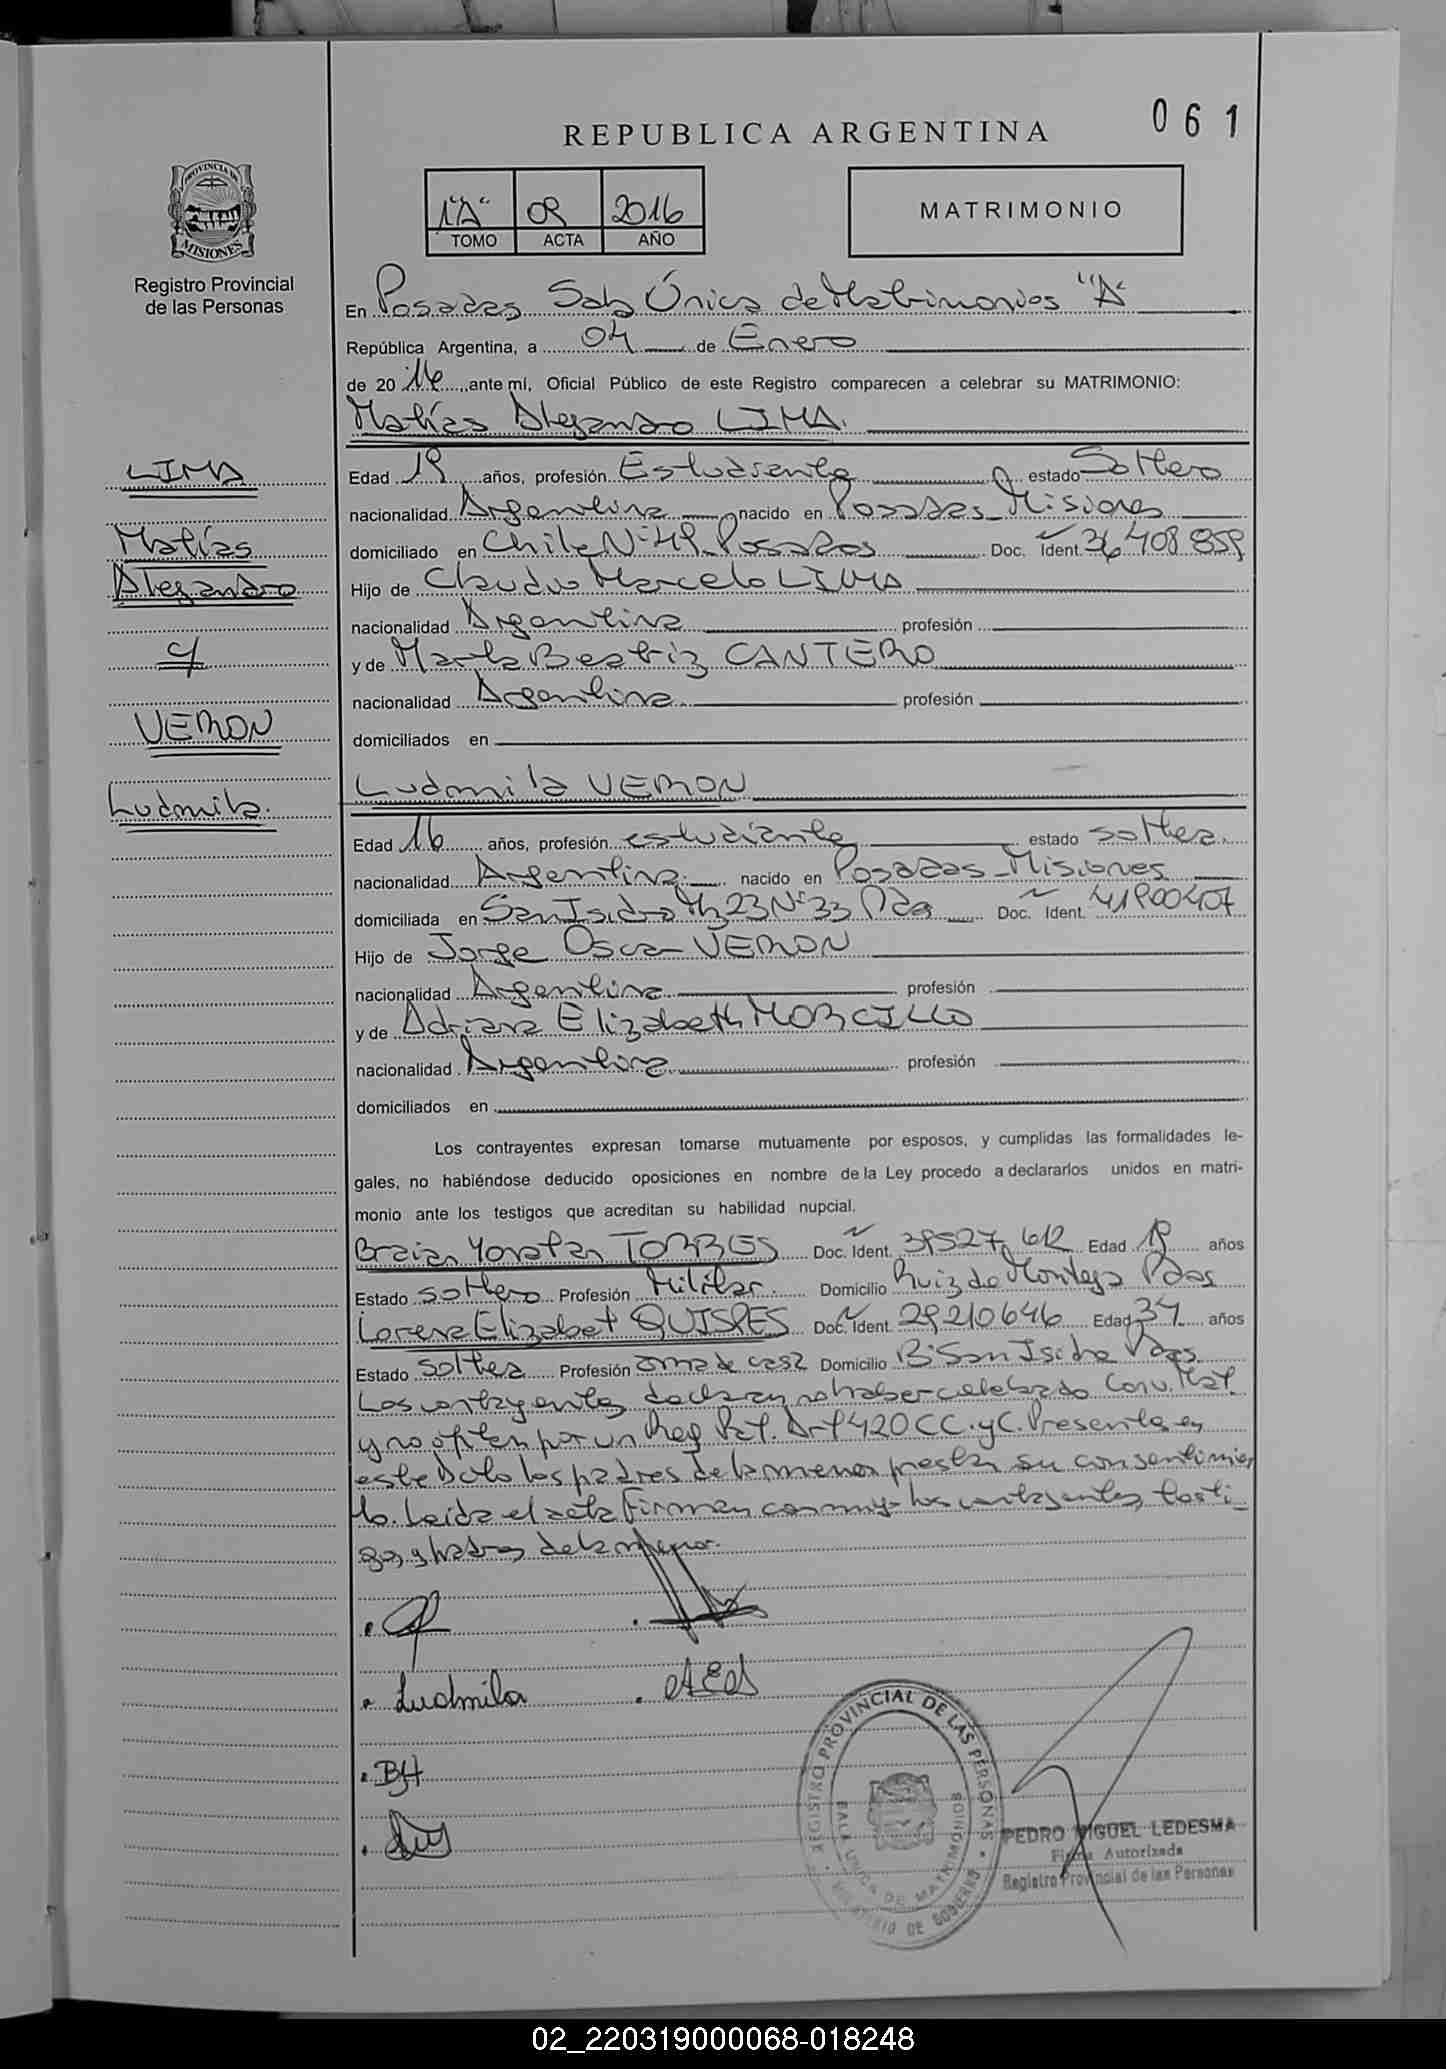 061
REPUBLICA ARGENTINA
1"A" 09 2016
TOMO ACTA AÑO
MATRIMONIO
PROVINCIA DE
MISIONES
Registro Provincial
de las Personas
En Posadas Sala Única de Matrimonios "A"
República Argentina, a 04 de Enero
de 2016, ante mí, Oficial Público de este Registro comparecen a celebrar su MATRIMONIO:
Matías Alejandro LIMA.
LIMA
Matías
Alejandro
y
VERON
Ludmila.
Edad 19 años, profesión Estudiante estado Soltero
nacionalidad Argentina nacido en Posadas Misiones
domiciliado en Chile N° 49 Posadas Doc. Ident. 36 408 859
Hijo de Claudio Marcelo LIMA
nacionalidad Argentina profesión
y de Marta Beatriz CANTERO
nacionalidad Argentina profesión
domiciliados en
Ludmila VERON
Edad 16 años, profesión estudiante estado soltera.
nacionalidad Argentina nacido en Posadas Misiones
domiciliada en San Isidro Mz 23 N° 33 Pdas Doc. Ident. 41900407
Hijo de Jorge Oscar VERON
nacionalidad Argentina profesión
y de Adriana Elizabeth MORCILLO
nacionalidad Argentina profesión
domiciliados en
Los contrayentes expresan tomarse mutuamente por esposos, y cumplidas las formalidades le-
gales, no habiéndose deducido oposiciones en nombre de la Ley procedo a declararlos unidos en matri-
monio ante los testigos que acreditan su habilidad nupcial.
Braian Yonatan TORRES Doc. Ident. 39527612 Edad 19 años
Estado soltero Profesión Militar. Domicilio Ruiz de Montoya Pdas
Lorena Elizabet QUISPES Doc. Ident. 29210646 Edad 34 años
Estado soltera Profesión ama de casa Domicilio B° San Isidro Pdas.
Los contrayentes declaran no haber celebrado Conv. Mat.
y no optan por un Reg Pat. Art 420 CC. y C. Presentes en
este Acto los padres de la menor prestan su consentimien
to. Leida el acta firman conmigo los contrayentes, testi-
gos, y padres de la menor.
Ludmila
REGISTRO PROVINCIAL DE LAS PERSONAS
SALA UNICA DE MATRIMONIOS
MINISTERIO DE GOBIERNO
PEDRO MIGUEL LEDESMA
Firma Autorizada
Registro Provincial de las Personas
02_220319000068-018248